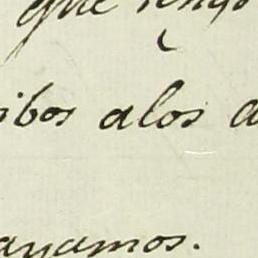 que tengo
ibos alos a
ayamos.